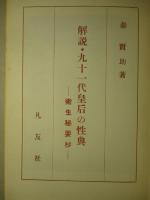 泰賢助著
解説・九十一代皇后の性典
―衛生秘要抄―
凡友社